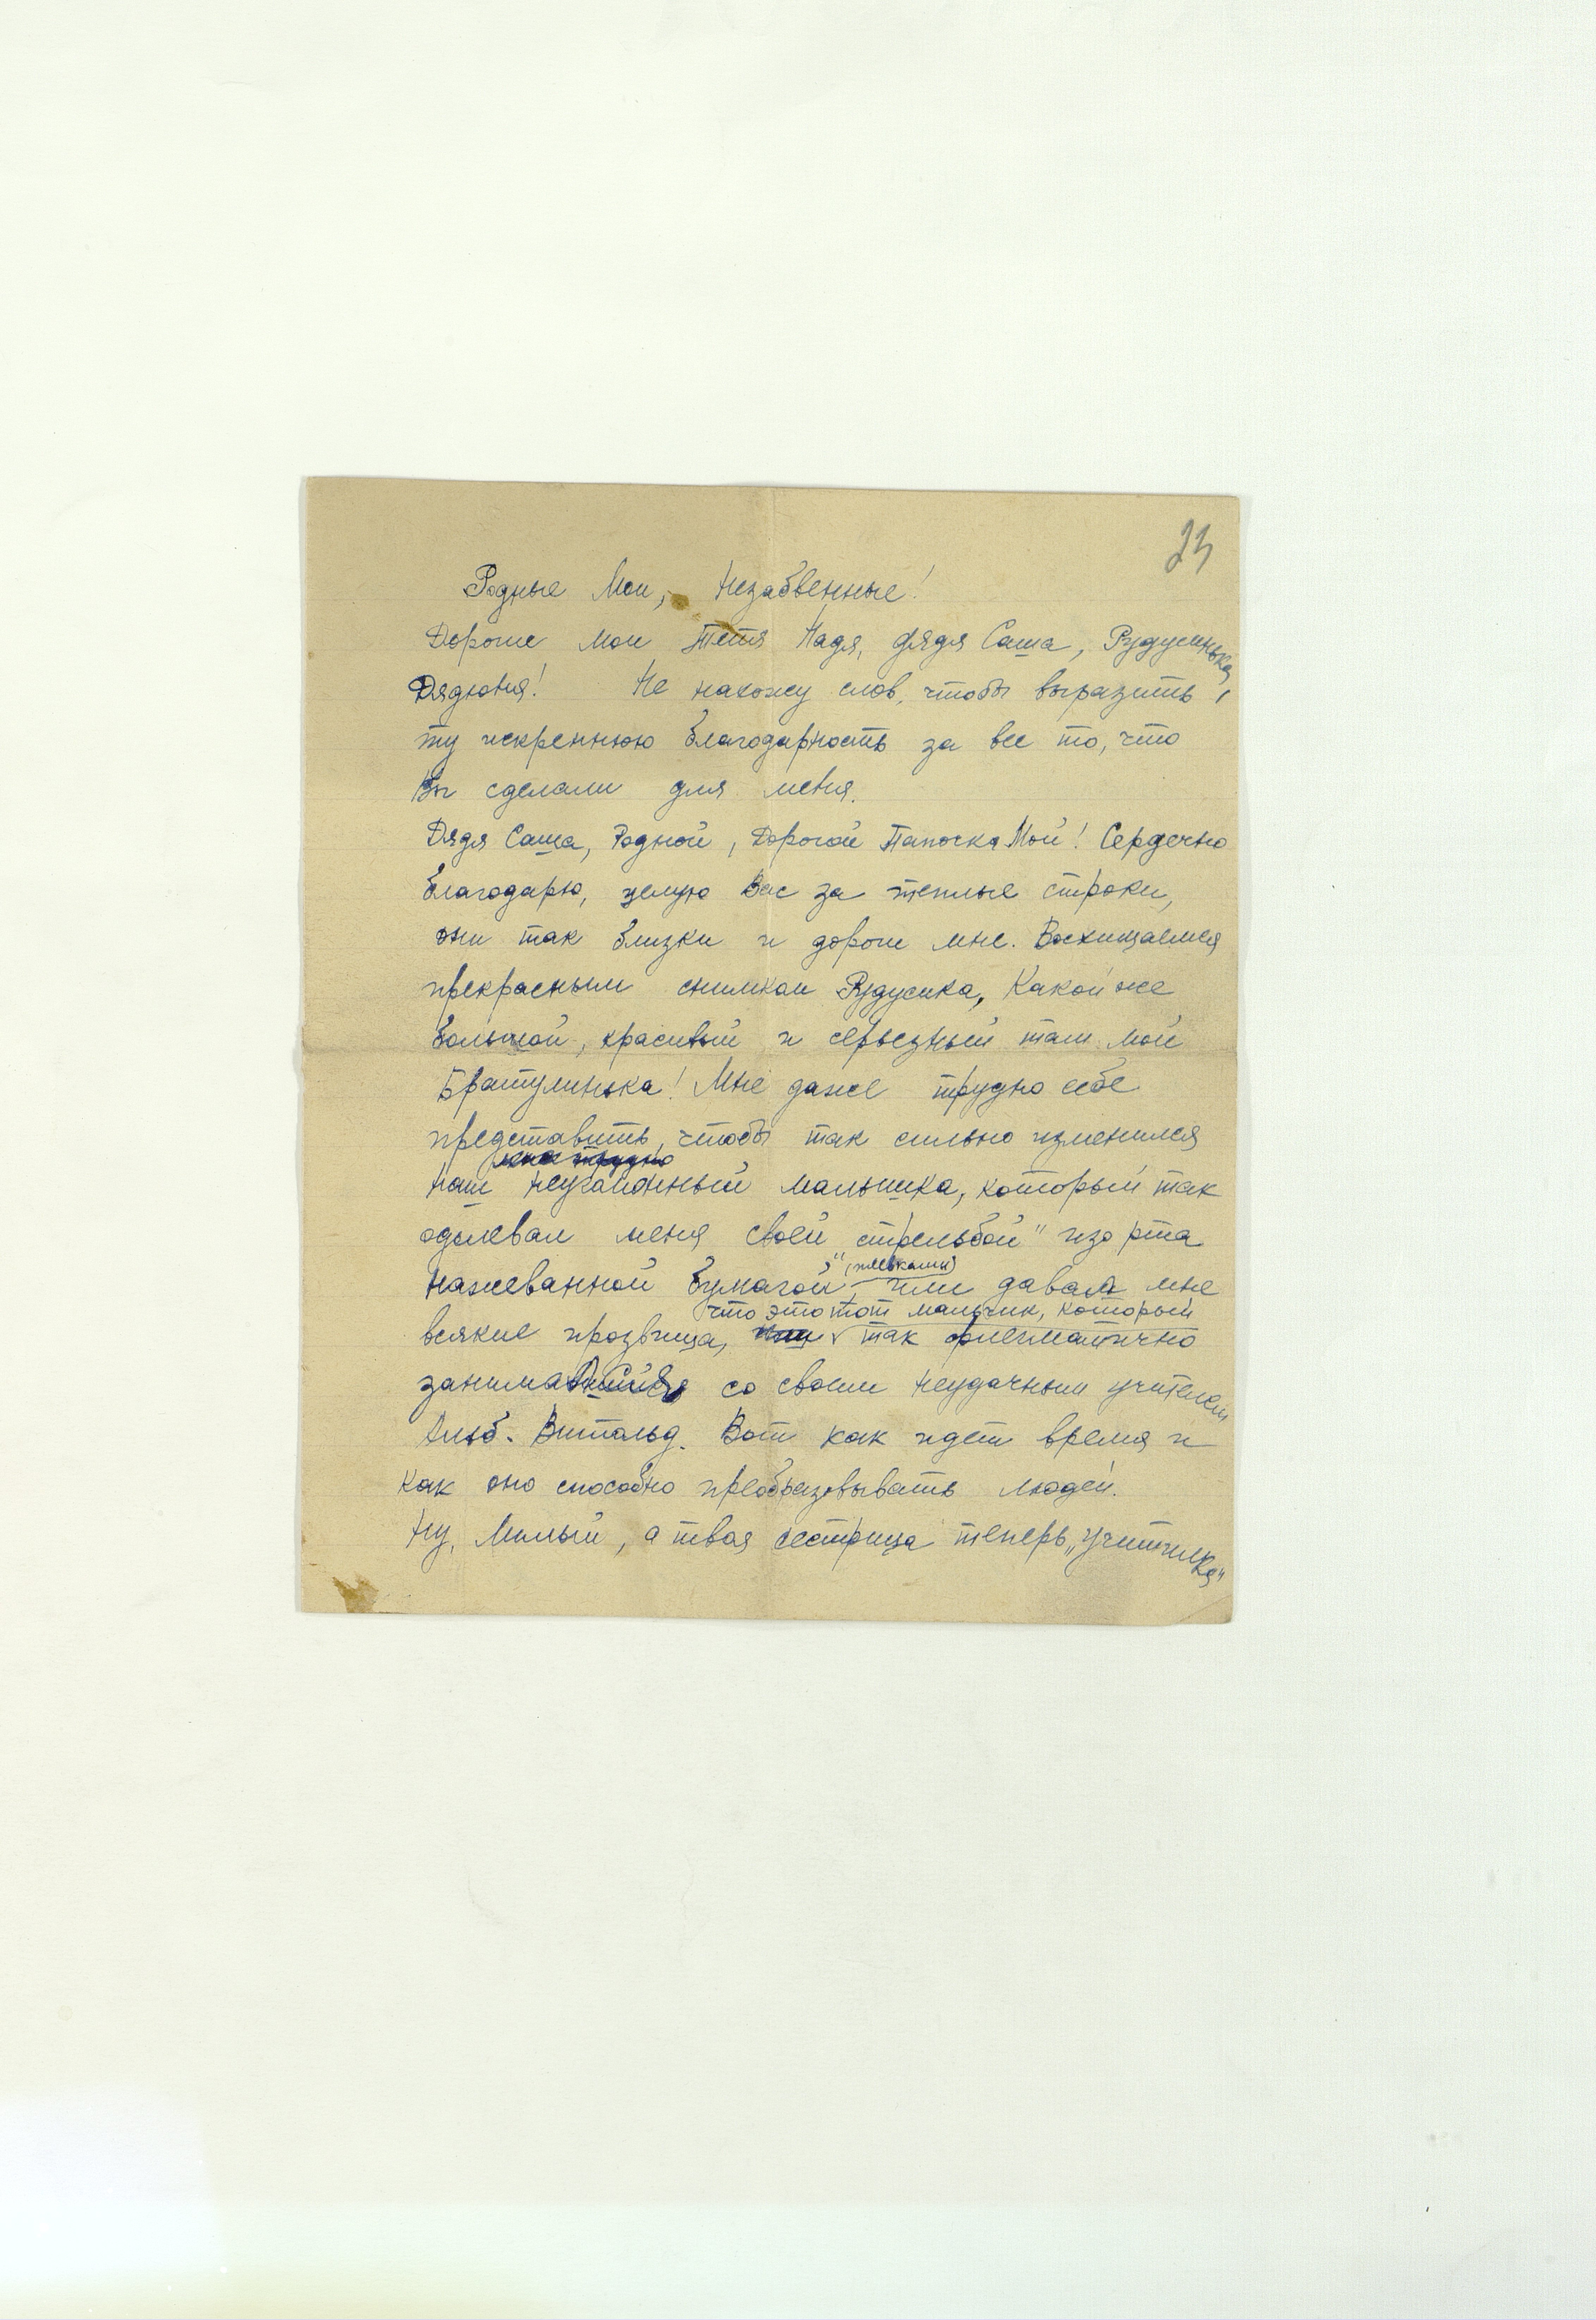 23
Родные Мои, Незабвенные!
Дорогие мои Тетя Надя, дядя Саша, Рудусинька,
Дядюня! Не нахожу слов, чтобы выразить
ту искреннюю благодарность за все то, что
Вы сделали для меня.
Дядя Саша, Родной, Дорогой Папочка Мой! Сердечно
благодарю, целую Вас за теплые строки,
они так близки и дороги мне. Восхищаемся
прекрасным снимком Рудусика, Какой же
большой, красивый и серьезный там мой
Братулинька! Мне даже трудно себе
представить, чтобы так сильно изменился
наш неугомонный мальчишка, который так
одолевал меня своей „стрельбой" изо рта
(жевками)
нажеванной бумагой или давал мне
что это тот мальчик, который
всякие прозвища, так флегматично
занимавшийся со своим неудачным учителем
Альб. Витольд. Вот как идет время и
как оно способно преобразовывать людей.
Ну, Милый, а твоя сестрица теперь „учителка"